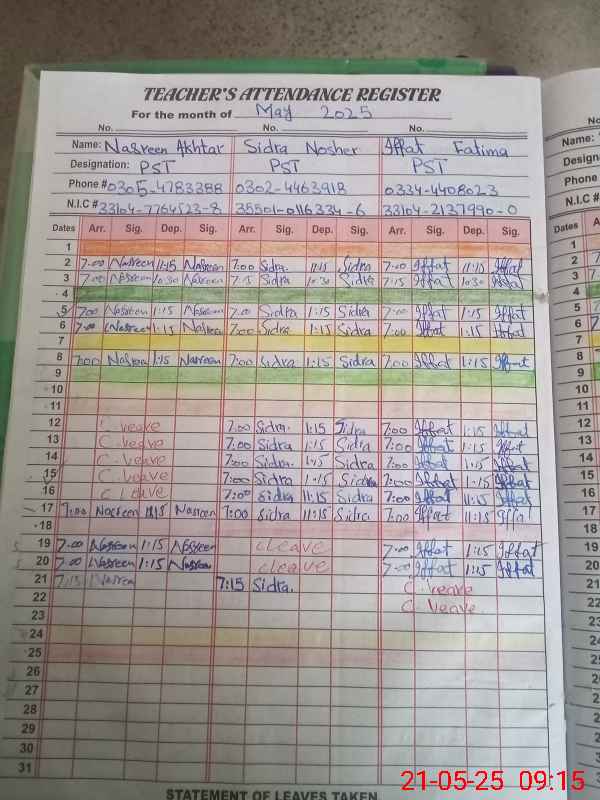 TEACHER'S ATTENDANCE REGISTER
For the month of May 2025
No. No. No.
Name: Nasreen Akhtar Sidra Nosher Iffat Fatima
Designation: PST PST PST
Phone # 0305-4783388 0302-4463918 0334-4408023
N.I.C # 33104-7764523-8 35501-0116334-6 33104-2137990-0
Dates Arr. Sig. Dep. Sig. Arr. Sig. Dep. Sig. Arr. Sig. Dep. Sig.
1
2 7:00 Nasreen 11:15 Nasreen 7:00 Sidra. 11:15 Sidra 7:00 Iffat 11:15 Iffat
3 7:00 Nasreen 10:30 Nasreen 7:15 Sidra 10:30 Sidra 7:15 Iffat 10:30 Iffat
4
5 7:00 Nasreen 1:15 Nasreen 7:00 Sidra 1:15 Sidra 7:00 Iffat 1:15 Iffat
6 7:00 Nasreen 1:15 Nasreen 7:00 Sidra 1:15 Sidra 7:00 Iffat 1:15 Iffat
7
8 7:00 Nasreen 1:15 Nasreen 7:00 Sidra 1:15 Sidra 7:00 Iffat 1:15 Iffat
9
10
11
12 C. veave 7:00 Sidra. 1:15 Sidra 7:00 Iffat 1:15 Iffat
13 C. veave 7:00 Sidra 1:15 Sidra 7:00 Iffat 1:15 Iffat
14 C. veave 7:00 Sidra 1:15 Sidra 7:00 Iffat 1:15 Iffat
15 C. veave 7:00 Sidra 1:15 Sidra 7:00 Iffat 1:15 Iffat
16 C leave 7:00 Sidra 11:15 Sidra 7:00 Iffat 11:15 Iffat
17 7:00 Nasreen 11:15 Nasreen 7:00 Sidra 11:15 Sidra 7:00 Iffat 11:15 Iffat
18
19 7:00 Nasreen 1:15 Nasreen cleave 7:00 Iffat 1:15 Iffat
20 7:00 Nasreen 1:15 Nasreen cleave 7:00 Iffat 1:15 Iffat
21 7:15 Nasreen 7:15 Sidra. C. veave
22 C. veave.
23
24
25
26
27
28
29
30
31
STATEMENT OF LEAVES TAKEN
21-05-25 09:15